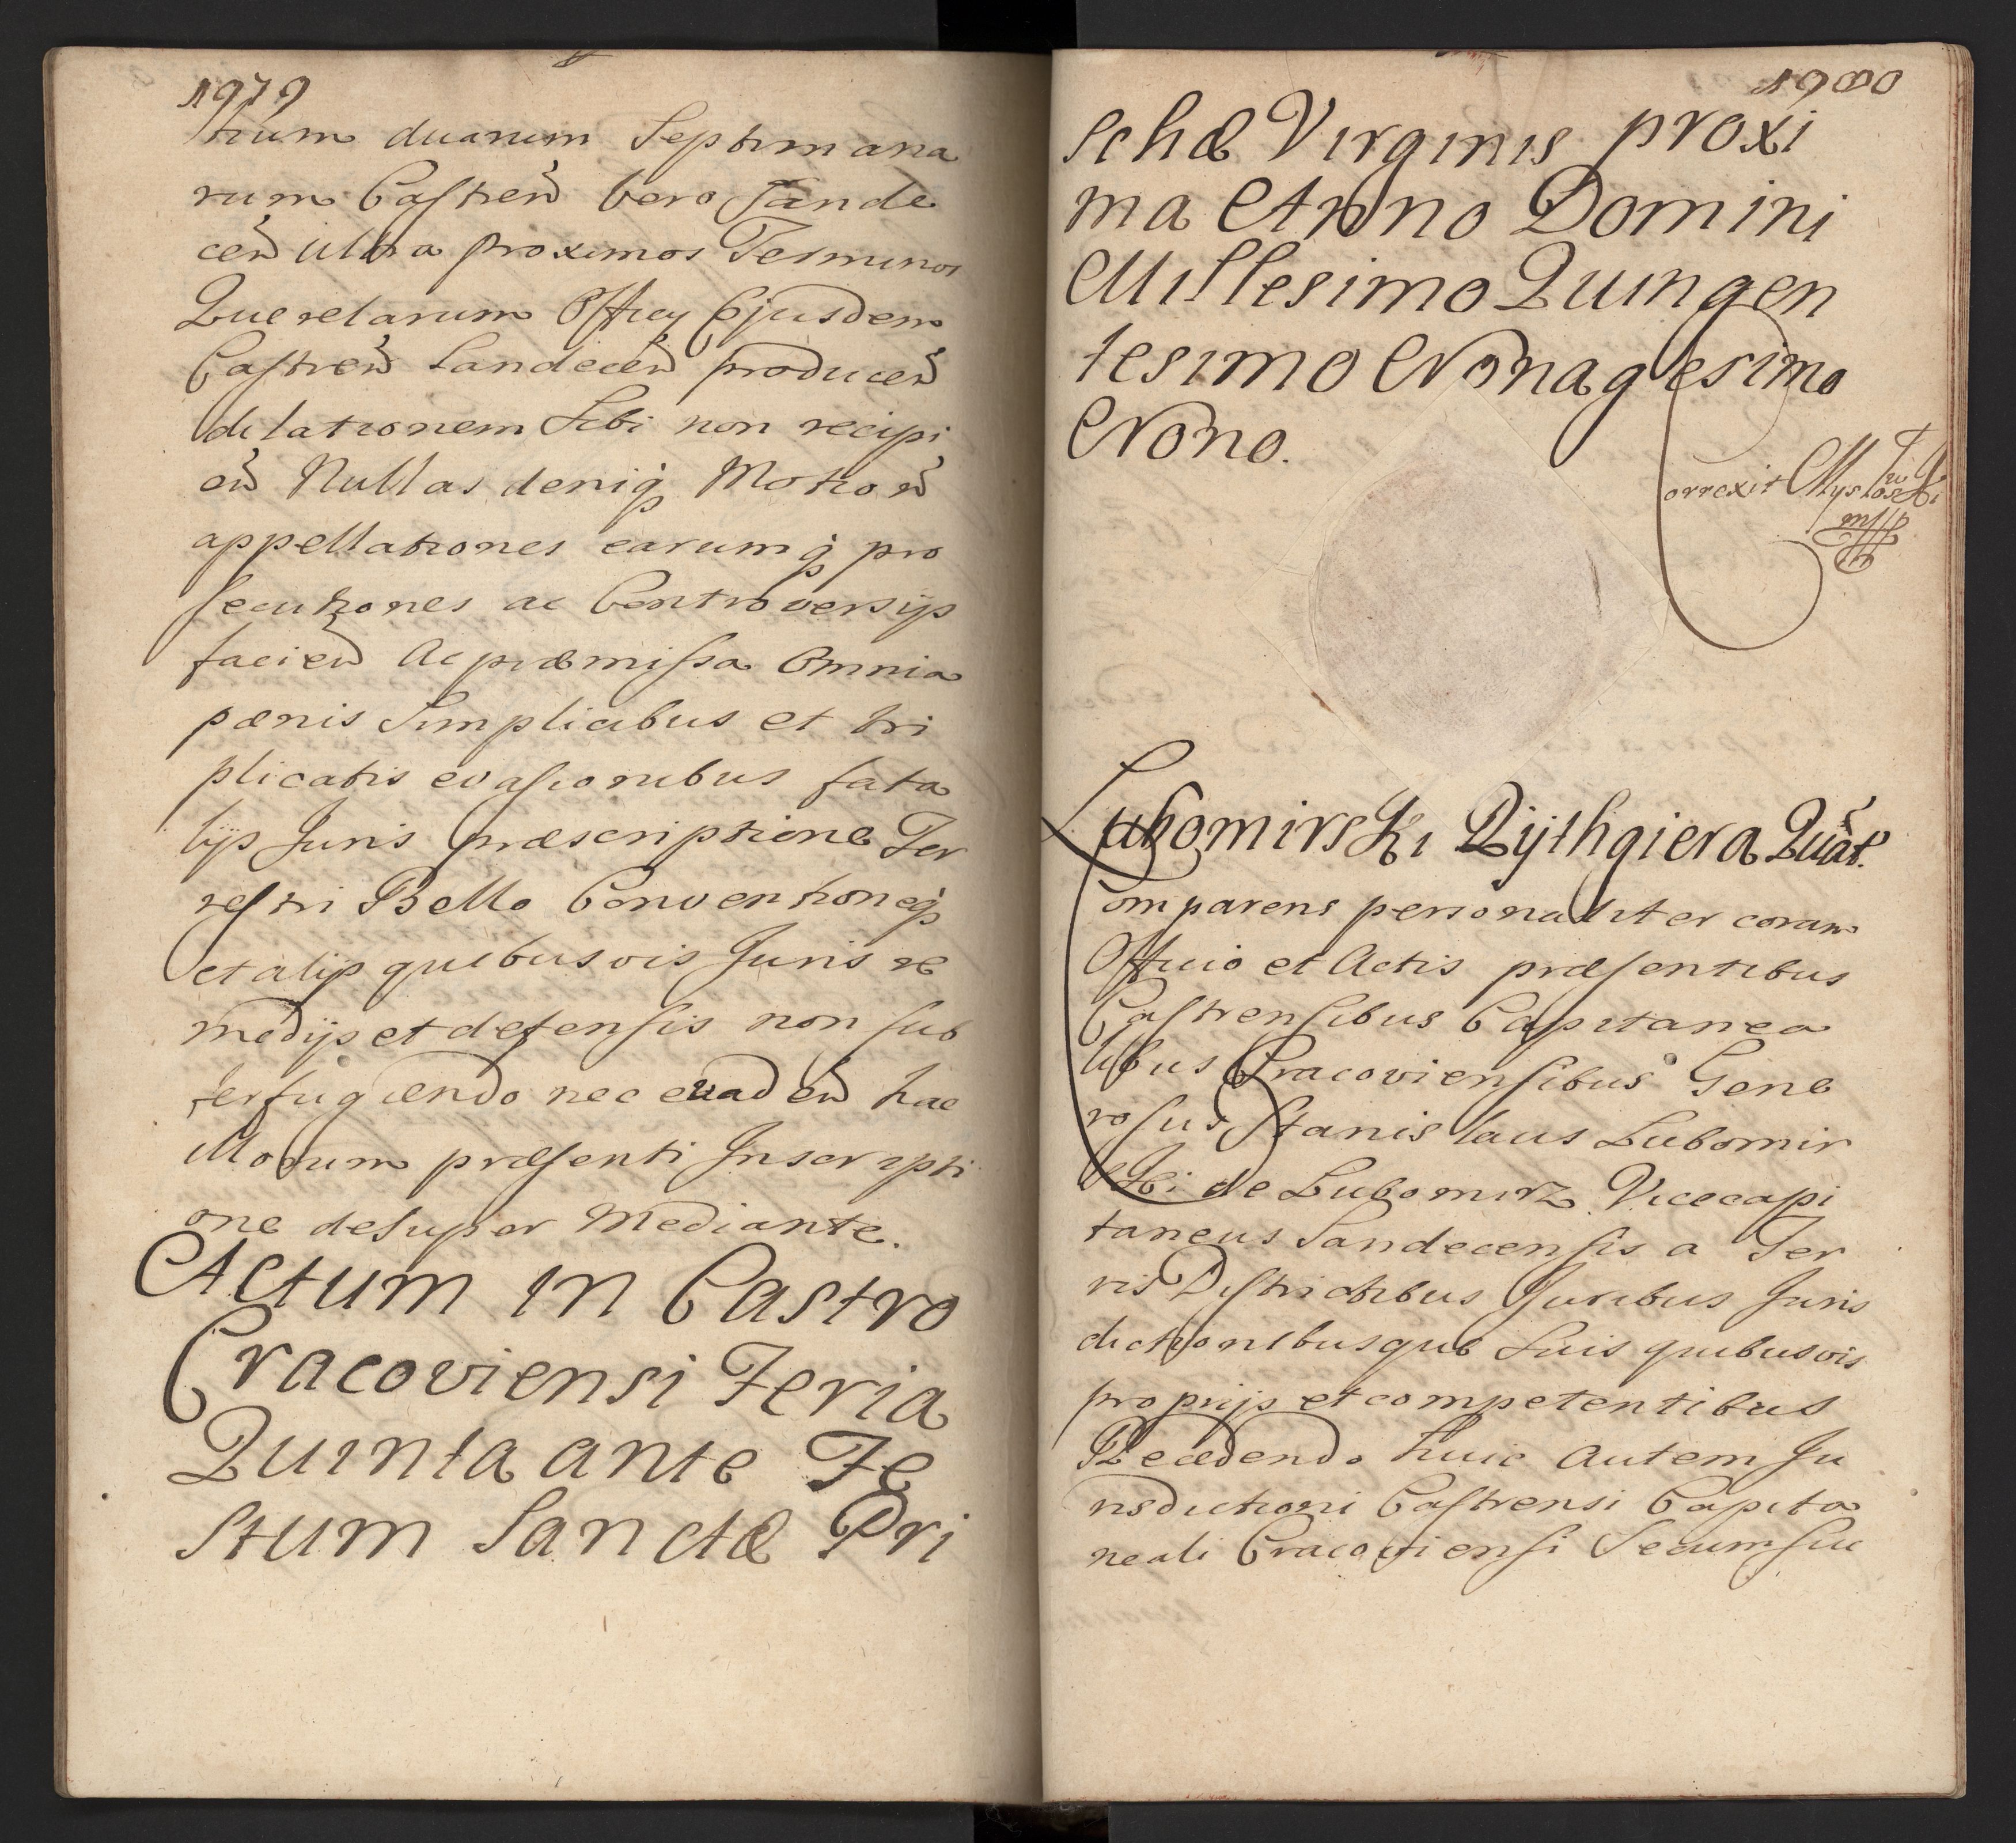 1979
trium duarum Septimana
rum Castren̄ vero Sande
cen̄ ultra proximos Terminos
Querelarum Officy Ejusdem
Castren̄ Sandecen̄ producen̄
dilationem Sibi non recipi
en̄ Nullas deniq̨ Motion̄
appellationes earumq̨ pro
secutiones ac Controversijs
facien̄ Ac præmissa Omnia
pœnis Simplicibus et tri
plicatis evasionibus fata
lijs Juris præscriptione Ter
restri Bello Conventioneq̨
et alijs quibusvis Juris re
medijs et defensis non sub
terfugiendo nec evaden̄ hac
Morum præsenti Inscripti
one desuper Mediante.
Actum in Castro
Cracoviensi Feria
Quinta ante Fe
stum Sanctæ Pri
1980
schæ Virginis proxi
ma Anno Domini
Millesimo Quingen
tesimo Nonagesimo
Nono.
Correxit
mpp
Lubomirski Rijthgiera Quāt.
Comparens personaliter coram
Officio et Actis præsentibus
Castrensibus Capitanea
libus Cracoviensibus Gene
rosus Stanislaus Lubomir
ski de Lubomirz Vicecapi
taneus Sandecensis a Ter
ris Districtibus Juribus Juris
dictionibusque Suis quibusvis
proprijs et competentibus
Recedendo huic autem Ju
risdictioni Castrensi Capita
neali Cracoviensi Secum suc